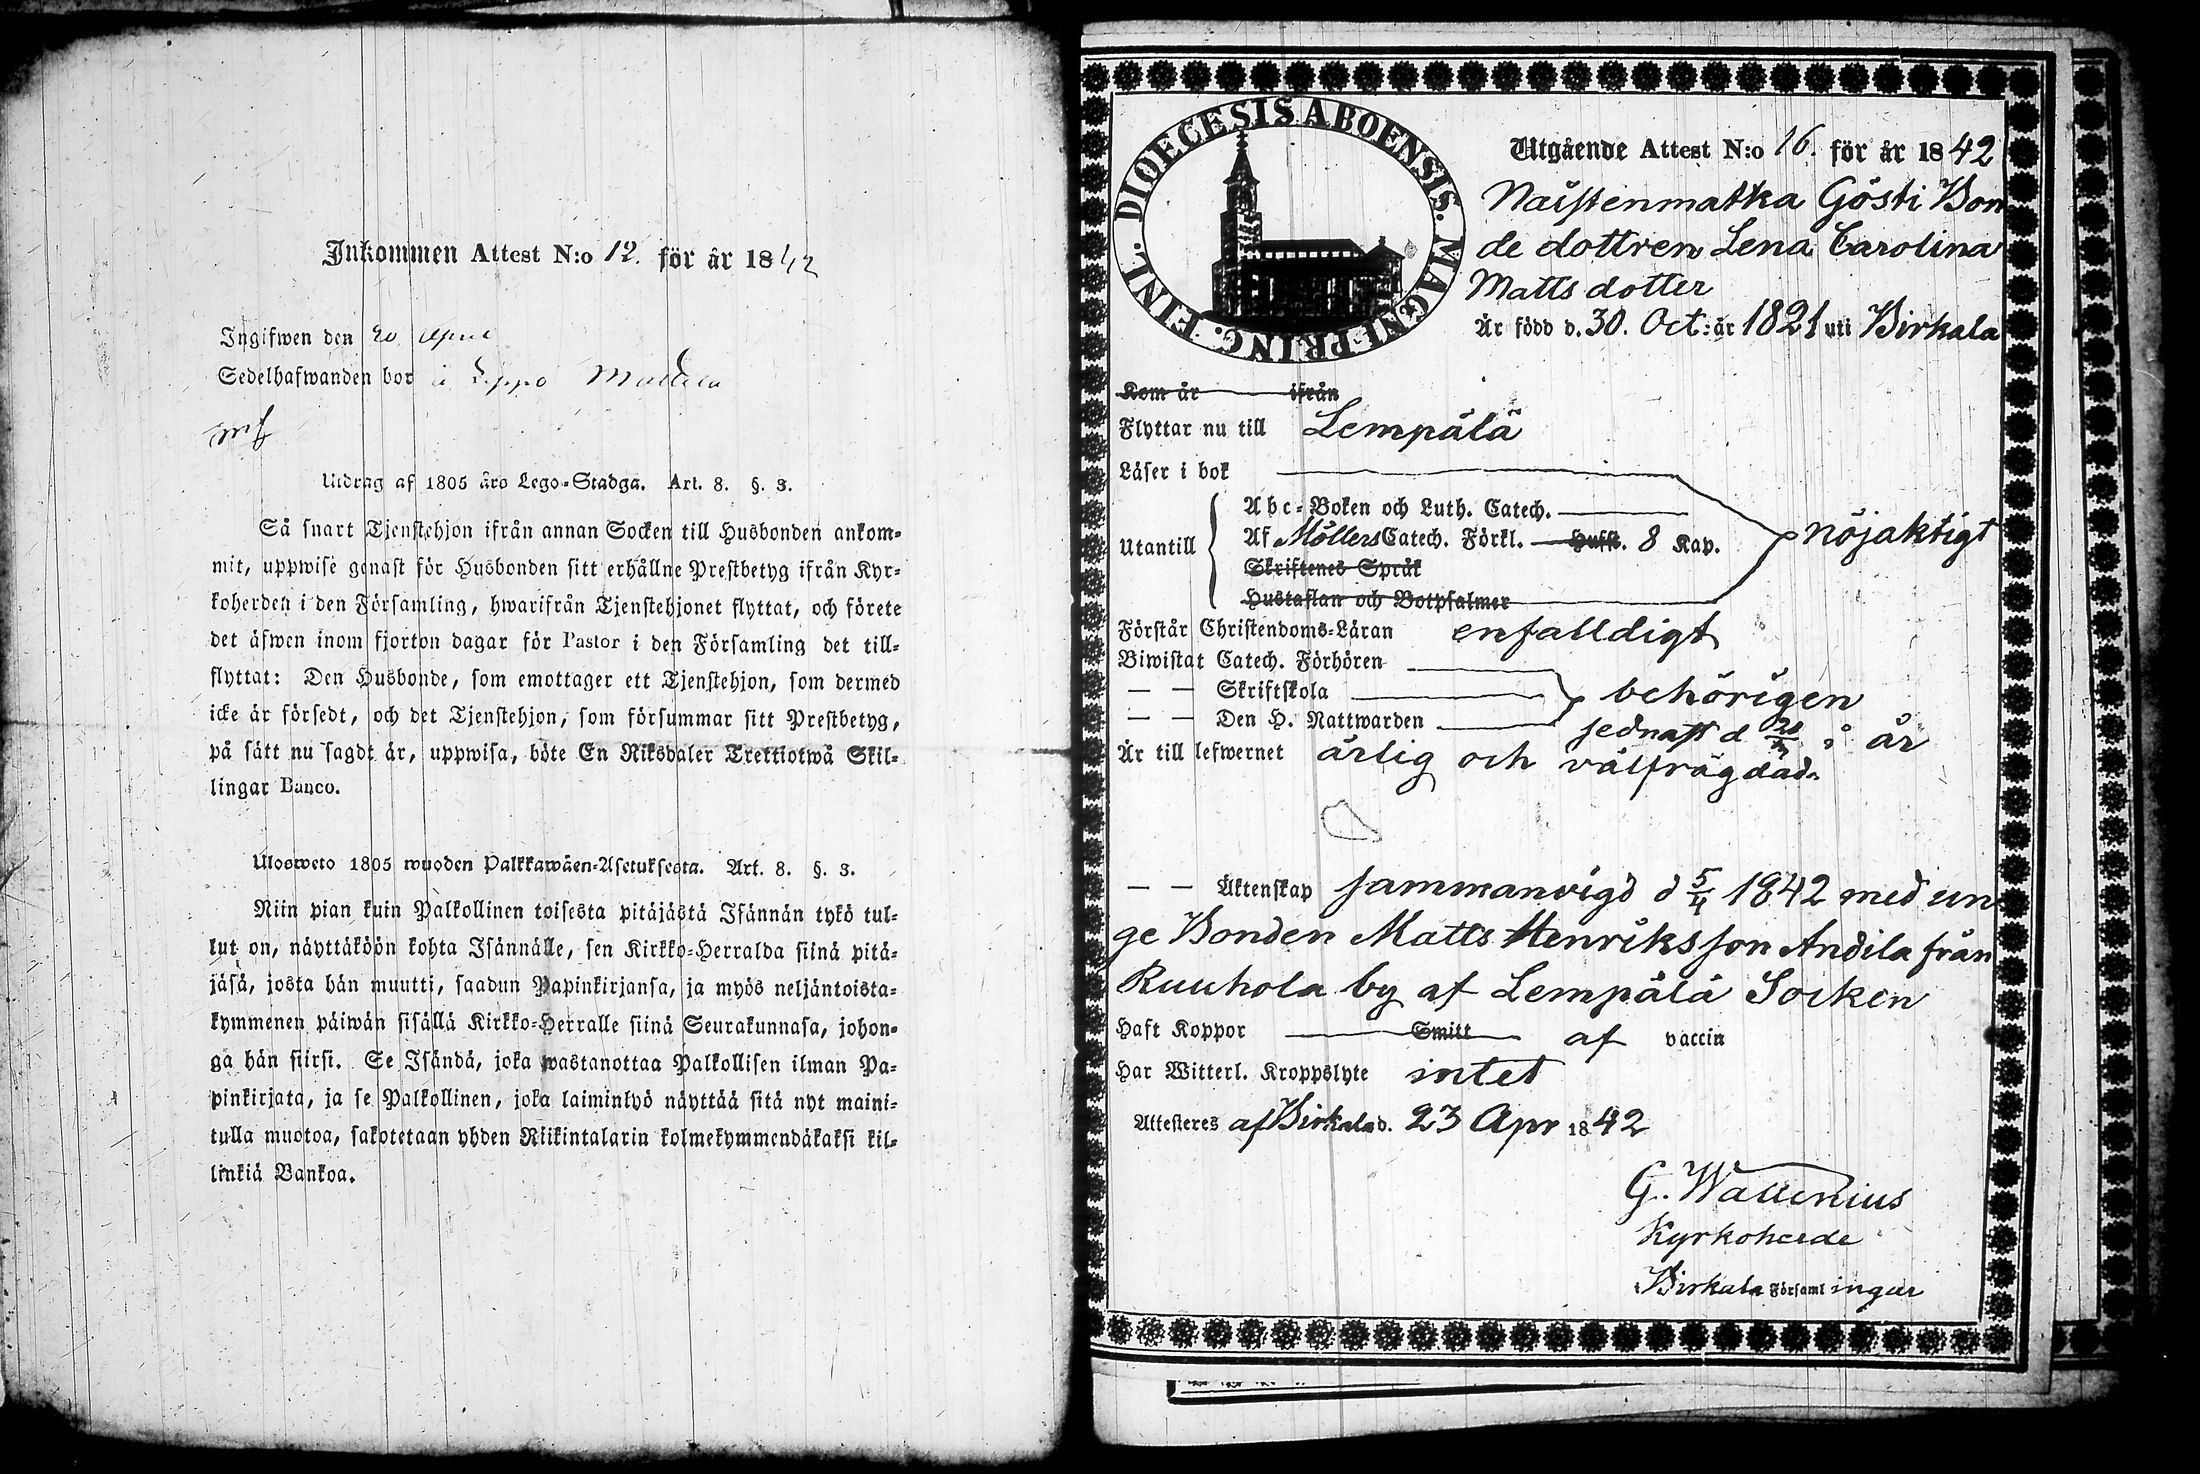 Inkommen Attest N:o 12. för år 1842
Ingifwen den 20 April
Sedelhafwanden bor i
Utdrag af 1805 års Lego-Stadga. Art. 8. §. 3.
Så snart Tjenstehjon ifrån annan Socken till Husbonden ankom-
mit, uppwise genast för Husbonden sitt erhållne Prestbetyg ifrån Kyr-
koherden i den Församling, hwarifrån Tjenstehjonet flyttat, och förete
det äfwen inom fjorton dagar för Pastor i den Församling det till-
flyttat: Den Husbonde, som emottager ett Tjenstehjon, som dermed
icke är försedt, och det Tjenstehjon, som försummar sitt Prestbetyg,
på sätt nu sagdt är, uppwisa, böte En Riksdaler Trettiotwå Skil-
lingar Banco.
Ulosweto 1805 wuoden Palkkawäen-Asetuksesta. Art. 8. §. 3.
Niin pian kuin Palkollinen toisesta pitäjästä Isännän tykö tul-
lut on, näyttäköön kohta Isännälle, sen Kirkko-Herralda siinä pitä-
jäsä, josta hän muutti, saadun Papinkirjansa, ja myös neljäntoista-
kymmenen päiwän sisällä Kirkko-Herralle siinä Seurakunnasa, johon-
ga hän siirsi. Se Isändä, joka wastanottaa Palkollisen ilman Pa-
pinkirjata, ja se Palkollinen, joka laiminlyö näyttää sitä nyt maini-
tulla muotoa, sakotetaan yhden Riikintalarin kolmekymmendäkaksi kil-
linkiä Bankoa.
DIOECESIS ABOENSIS. MAGNI PRINC. FINL.
Utgående Attest N:o 16. för år 1842
Naistenmatka Gösti Bon
de dottren Lena Carolina
Matts dotter
Är född d. 30. Oct: år 1821 uti Birkala
Kom år ifrån
Flyttar nu till Lempälä
Läser i bok
Abc-Boken och Luth. Catech.
Utantill Af Möllers Catech. Förkl. Hufst. 8 Kap. nöjaktigt
Skriftenes Språk
Hustaflan och Botpsalmer
Förstår Christendoms-Läran enfalldigt
Biwistat Catech. Förhören
— — Skriftskola behörigen
— — Den H. Nattwarden sednast d i år
Är till lefwernet ärlig och välfrägdad.
— — Äktenskap sammanvigd d 5/4 1842 med un
ge Bonden Matts Henriksson Andila från
Ruuhola by af Lempälä Socken
Haft Koppor Smitt af vaccin
Har Witterl. Kroppslyte intet
Attesteres af Birkala d. 23 Apr 1842
G. Wallenius
Kyrkoherde
Birkala Församlingar